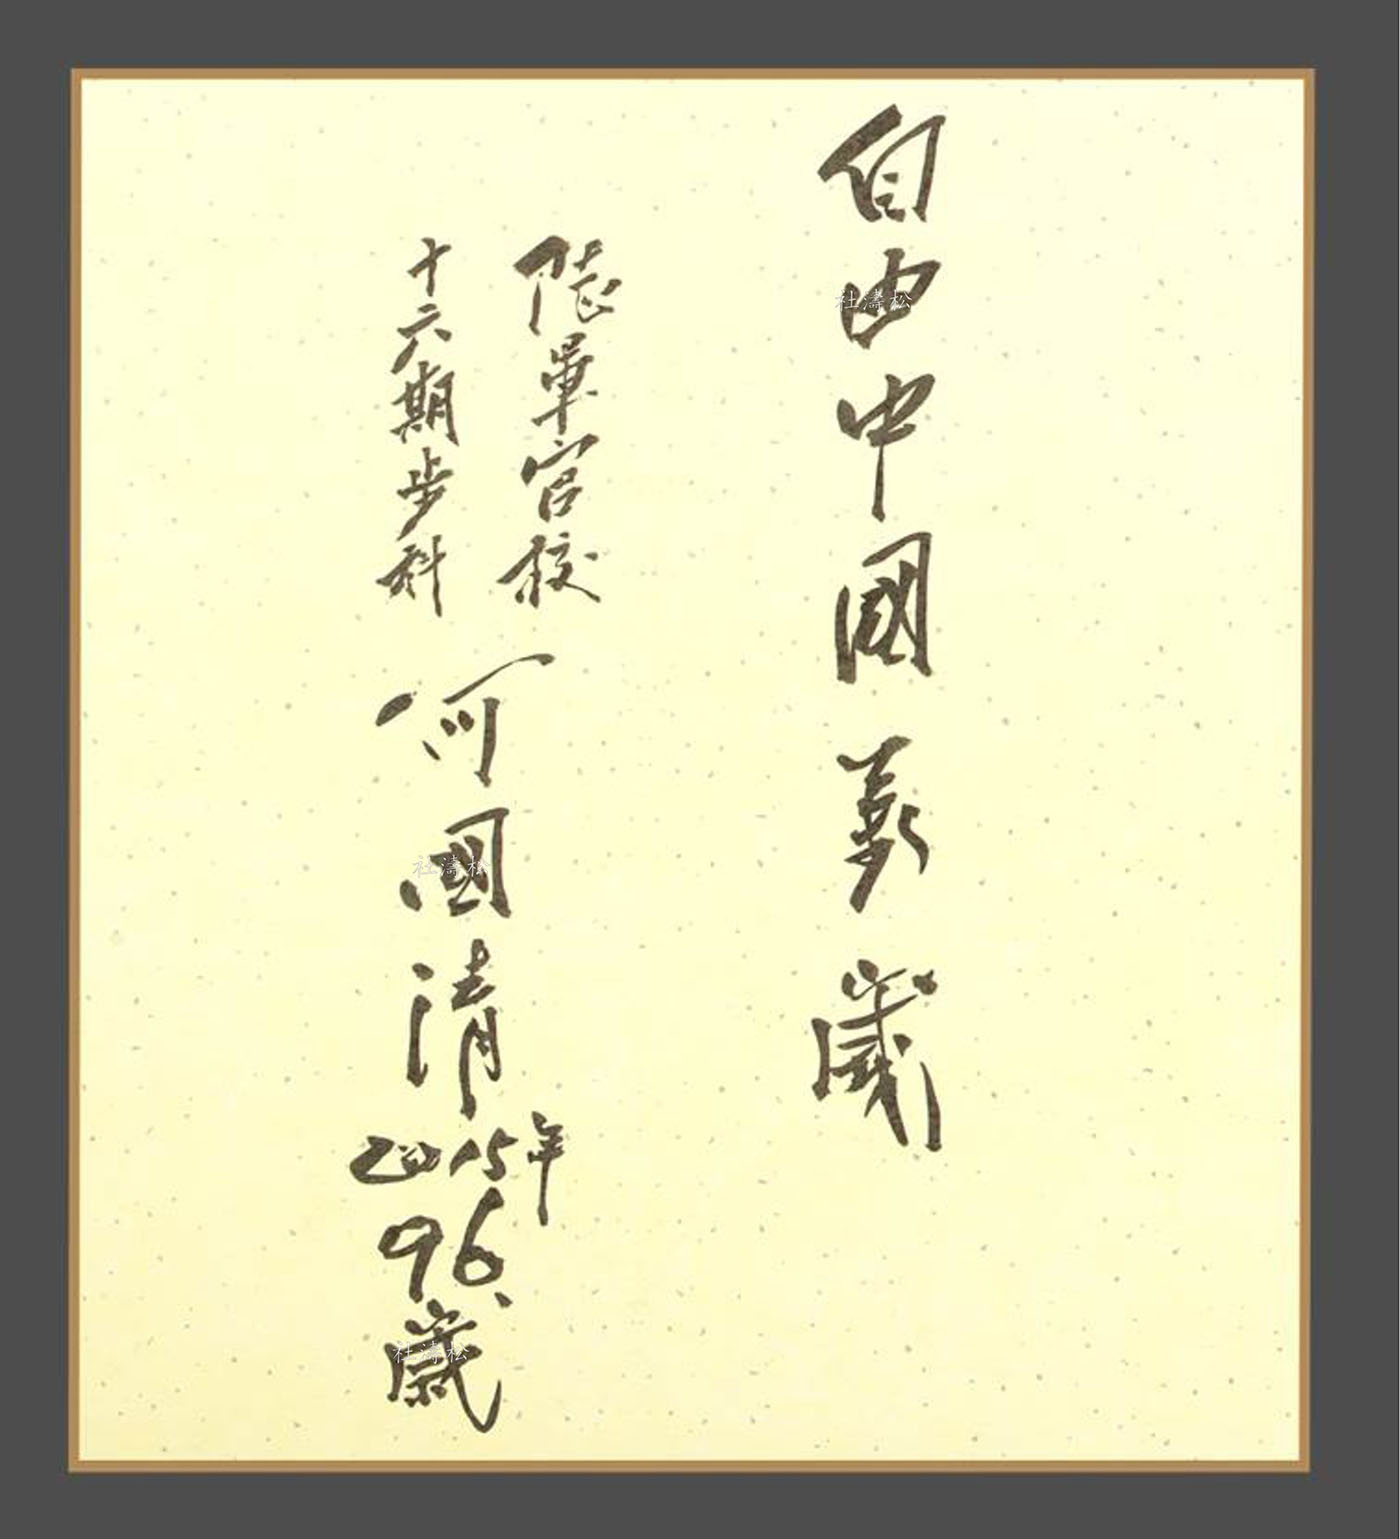 自由中國萬歲
陸軍官校
十六期步科
何國清
2015年
96歲
社濤松
社濤松
社濤松